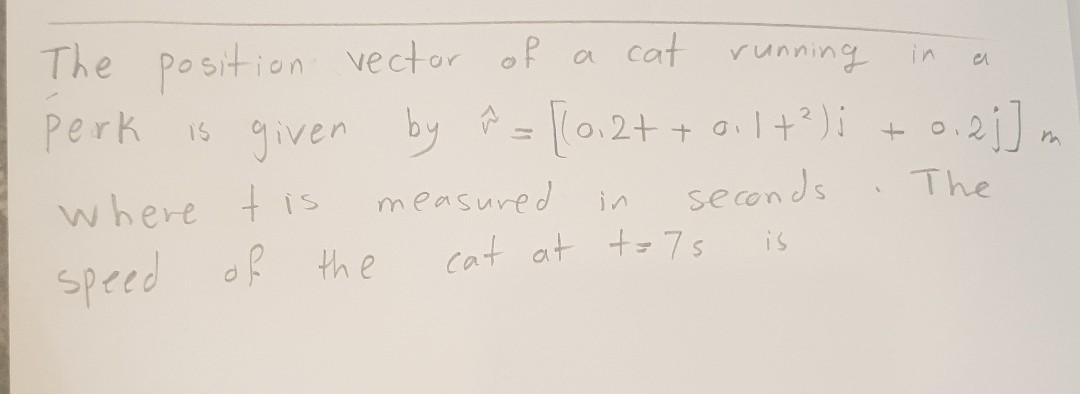 The position vector of a cat running in a
perk is given by r̂ = [(0.2t + 0.1t²)i + 0.2j] m
where t is measured in seconds. The
speed of the cat at t=7s is